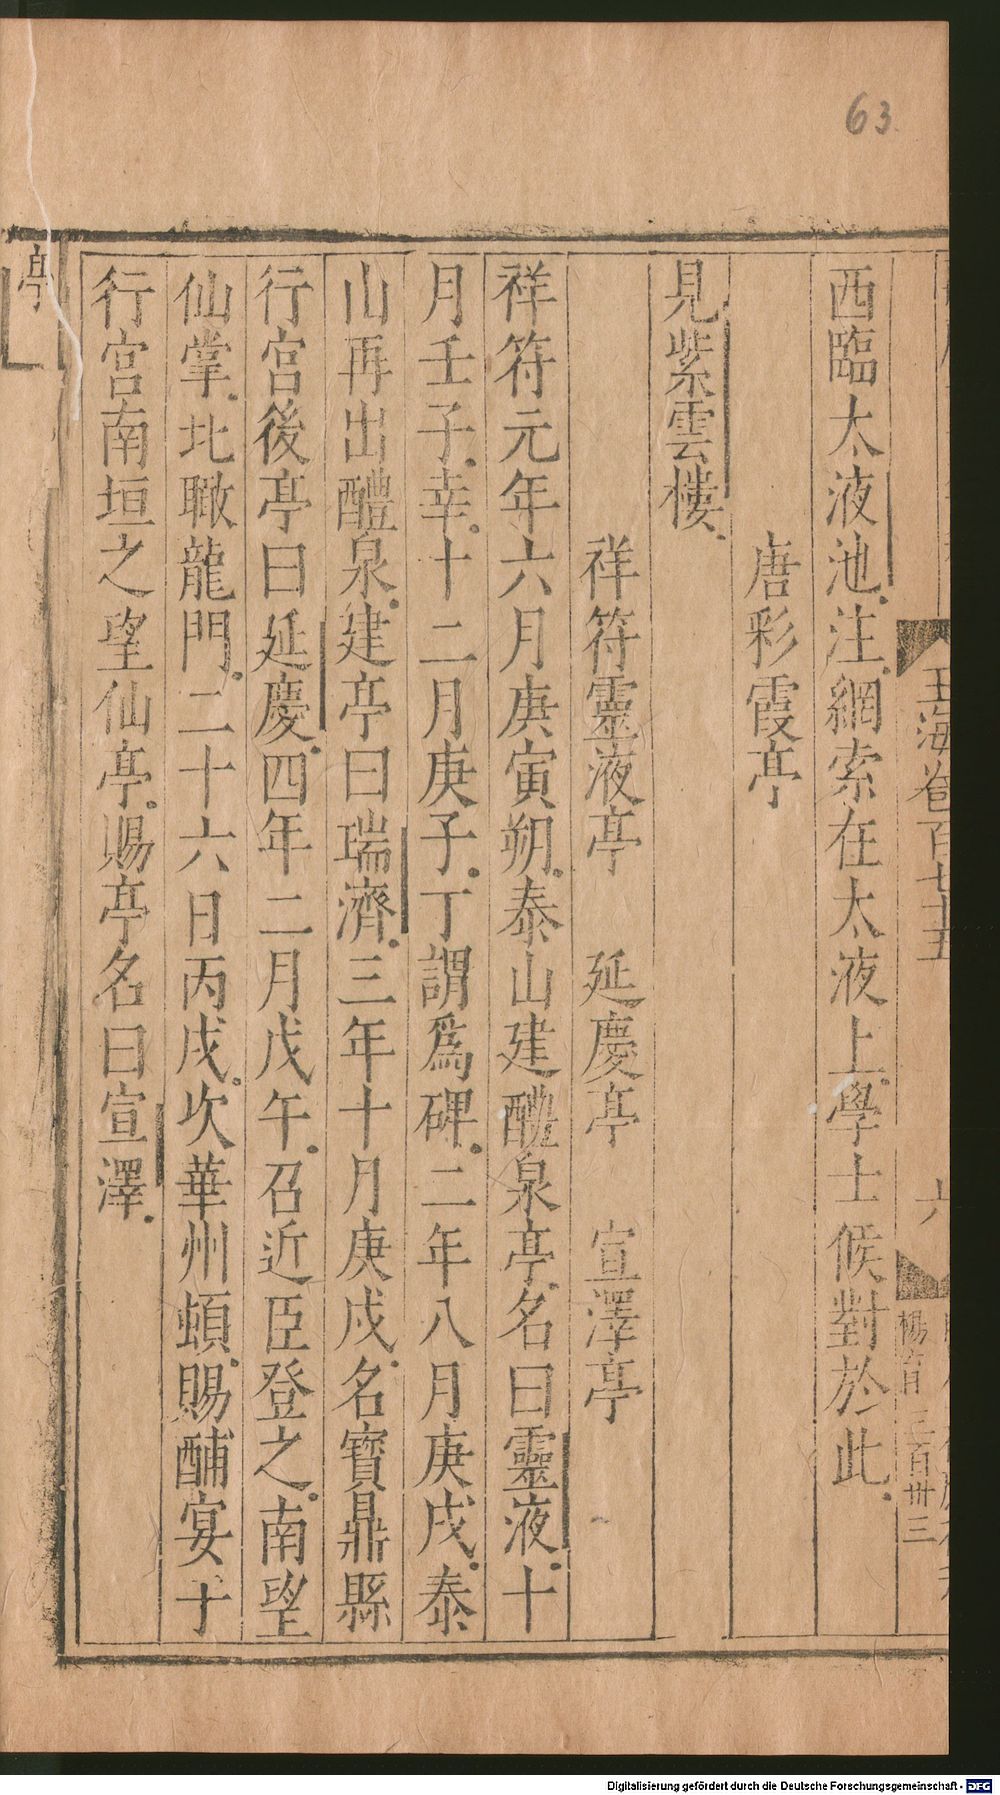 63
玉海卷百七十五
六
西臨太液池注網索在太液上學士候對於此
唐彩霞亭
見紫雲樓
祥符靈液亭 延慶亭 宣澤亭
祥符元年六月庚寅朔泰山建醴泉亭名曰靈液十
月壬子幸十二月庚子丁謂爲碑二年八月庚戌泰
山再出醴泉建亭曰瑞濟三年十月庚戌名寶鼎縣
行宮後亭曰延慶四年二月戊午召近臣登之南望
仙掌北瞰龍門二十六日丙戌次華州頓賜酺宴于
行宮南垣之望仙亭賜亭名曰宣澤
亭
Digitalisierung gefördert durch die Deutsche Forschungsgemeinschaft - DFG